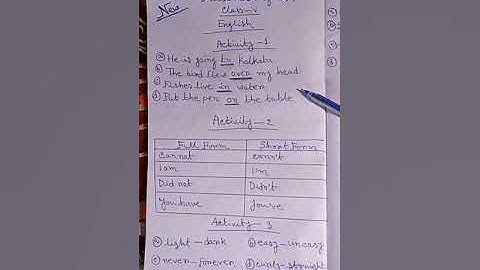 New
Class-V
English
Activity-1
ⓐ He is going to Kolkata
ⓑ The bird flew over my head.
ⓒ Fishes live in water
ⓓ Put the pen on the table
Activity-2
Full Form Short Form
cannot can't
I am I'm
Did not Didn't
You have You've
Activity-3
ⓐ light - dark ⓑ easy - uneasy
ⓒ never - forever ⓓ - straight